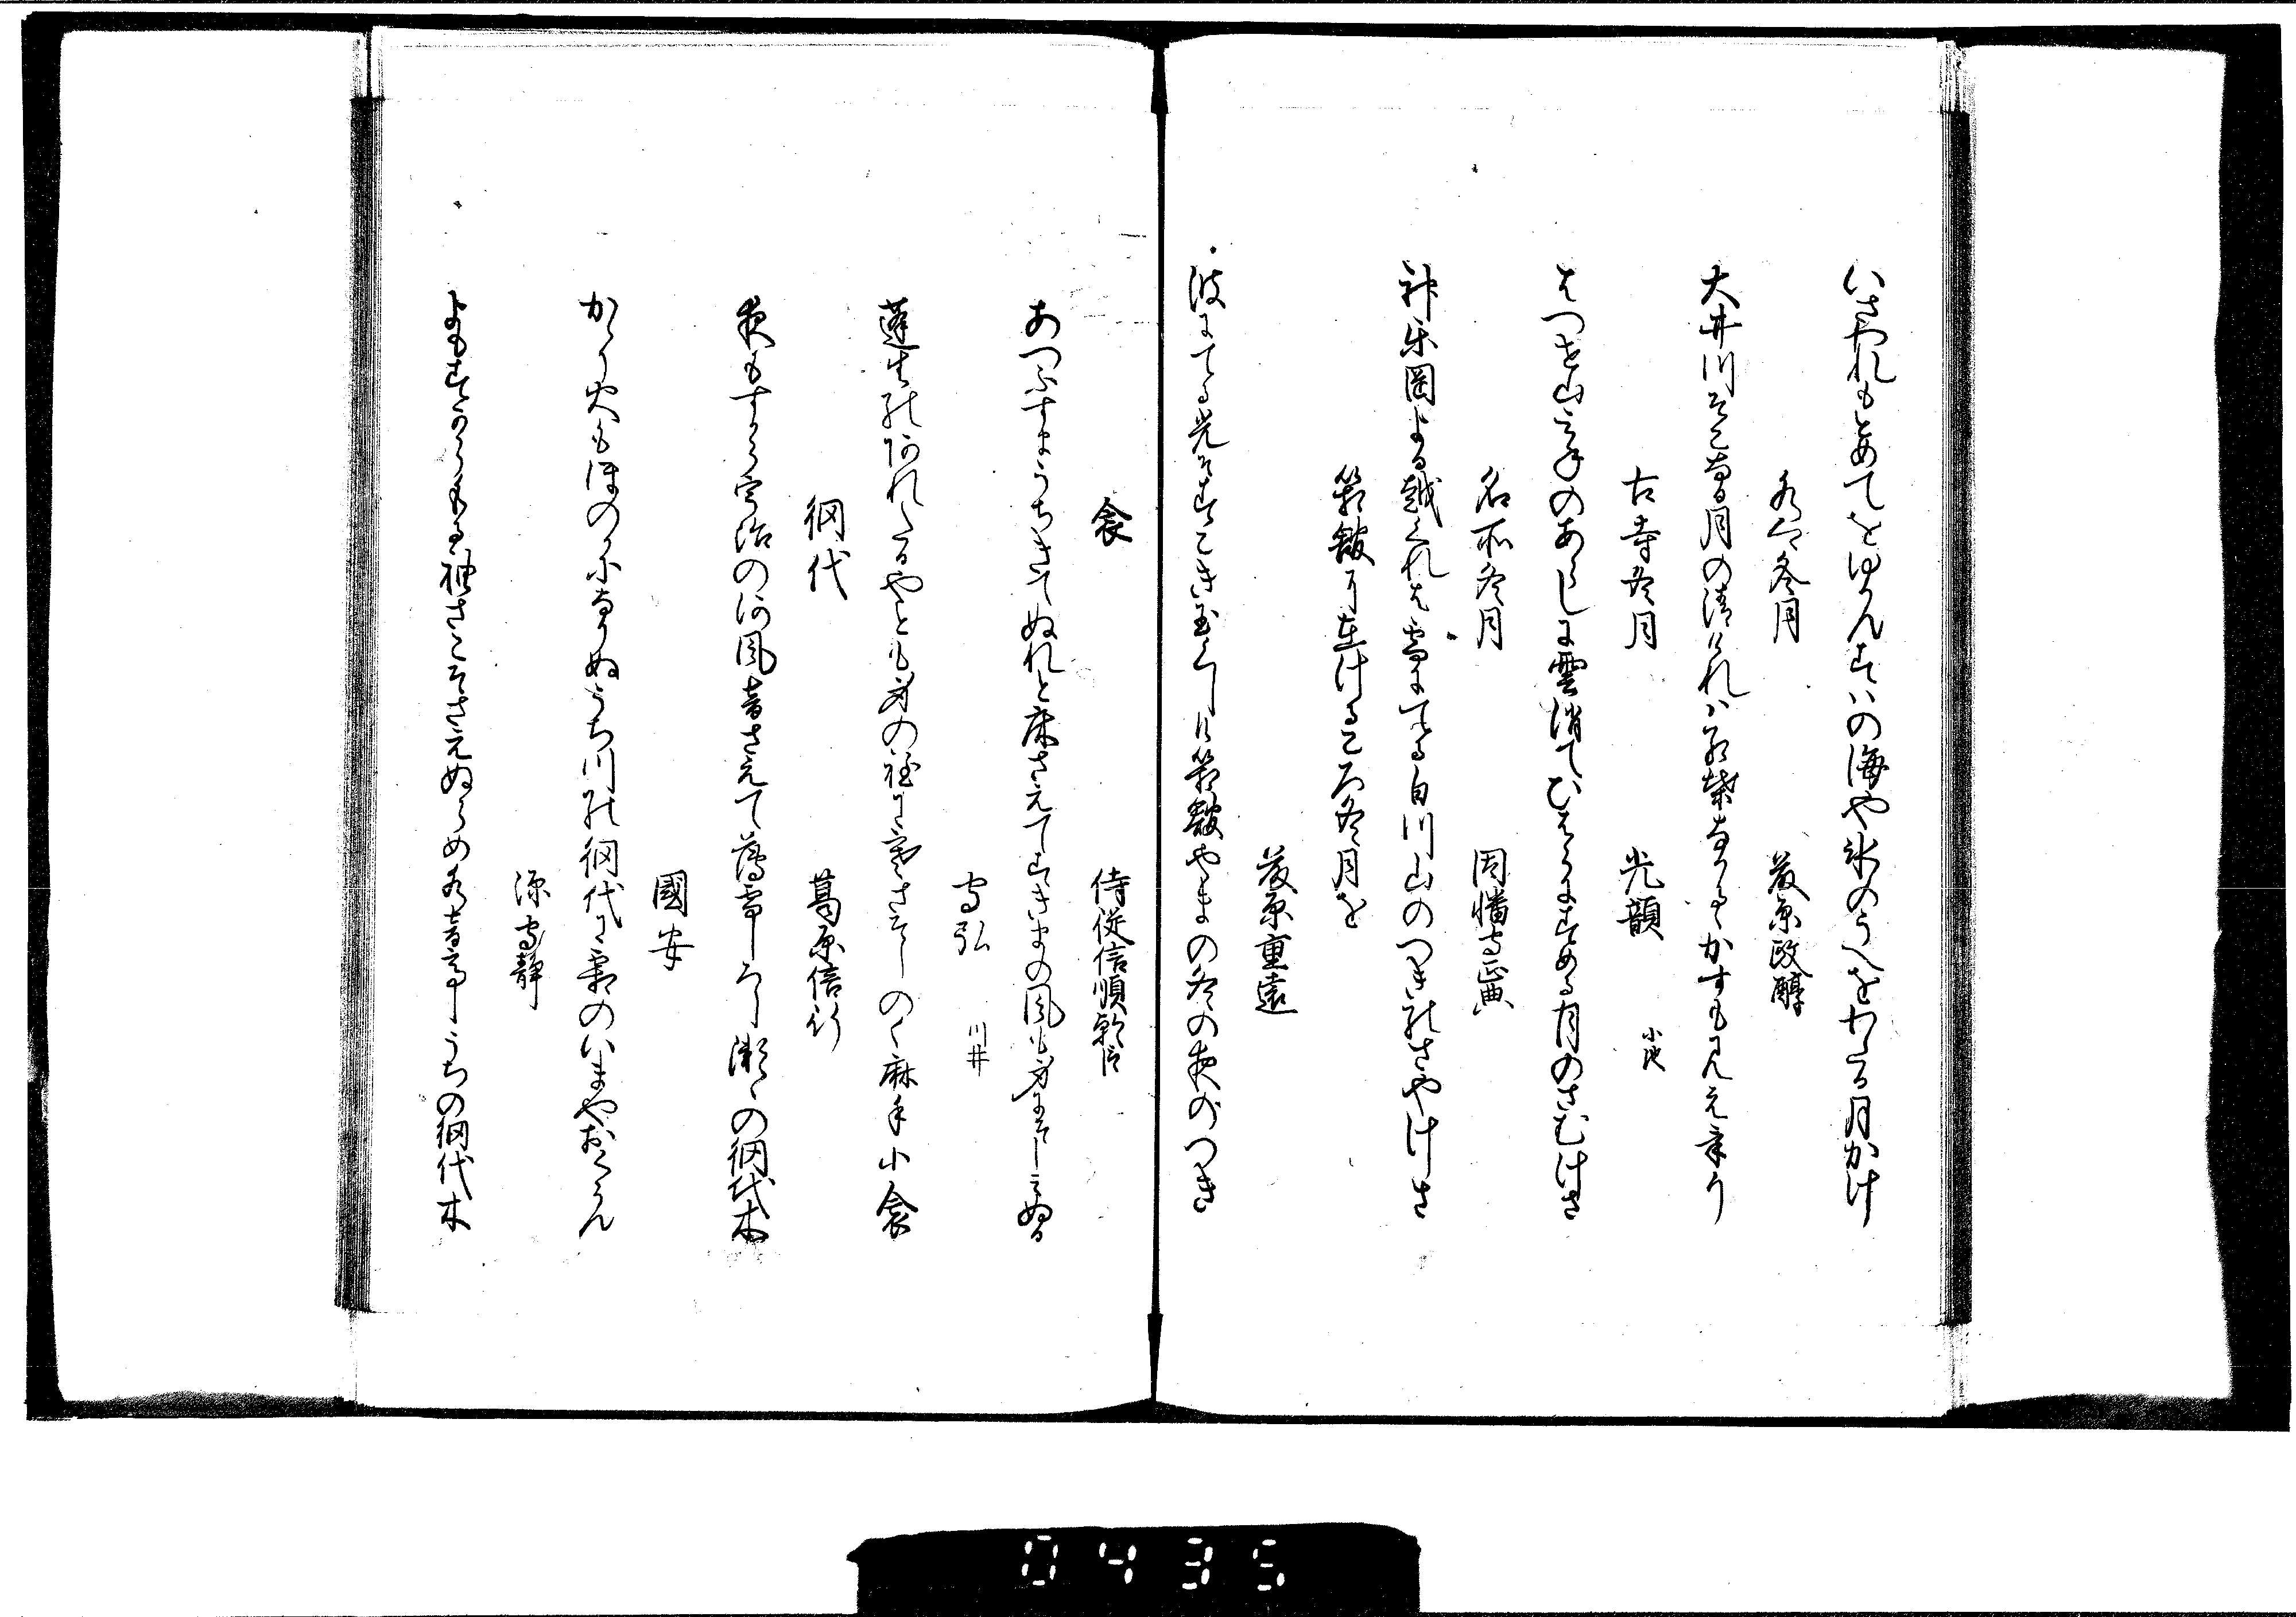 いさわれもとめてをゆかんすはの海や氷のうへをわたる月かけ
水上冬月
藤原政醇
大井川そこなる月の清けれは なりてかすもみえけり
古寺冬月
光韻 小池
はつせ山をのあらしに雲消てひはらにすめる月のさむけさ
名所冬月
因幡守正典
神楽岡よる越くれは雪にてる白川山のつきのさやけさ
箱館に在けるころ冬月を
藤原重遠
波にてる光そすこき玉くしけ箱館やまの冬の夜のつき
衾
侍従信順朝臣
あつふすまうちきてぬれと床さえてすきまの風も身にそしみぬる
守弘 川井
蓬生のあれたるやともの寒さをしのく麻手小衾
網代
葛原信行
夜もすから宇治の河風音さえて瀬々の網代木
國安
かゝり火もほのかになりぬうち川の網代に霜のいまやおくらん
源守静
よもすからもる袖さこそさえぬらめ水音高しうちの網代木
0435